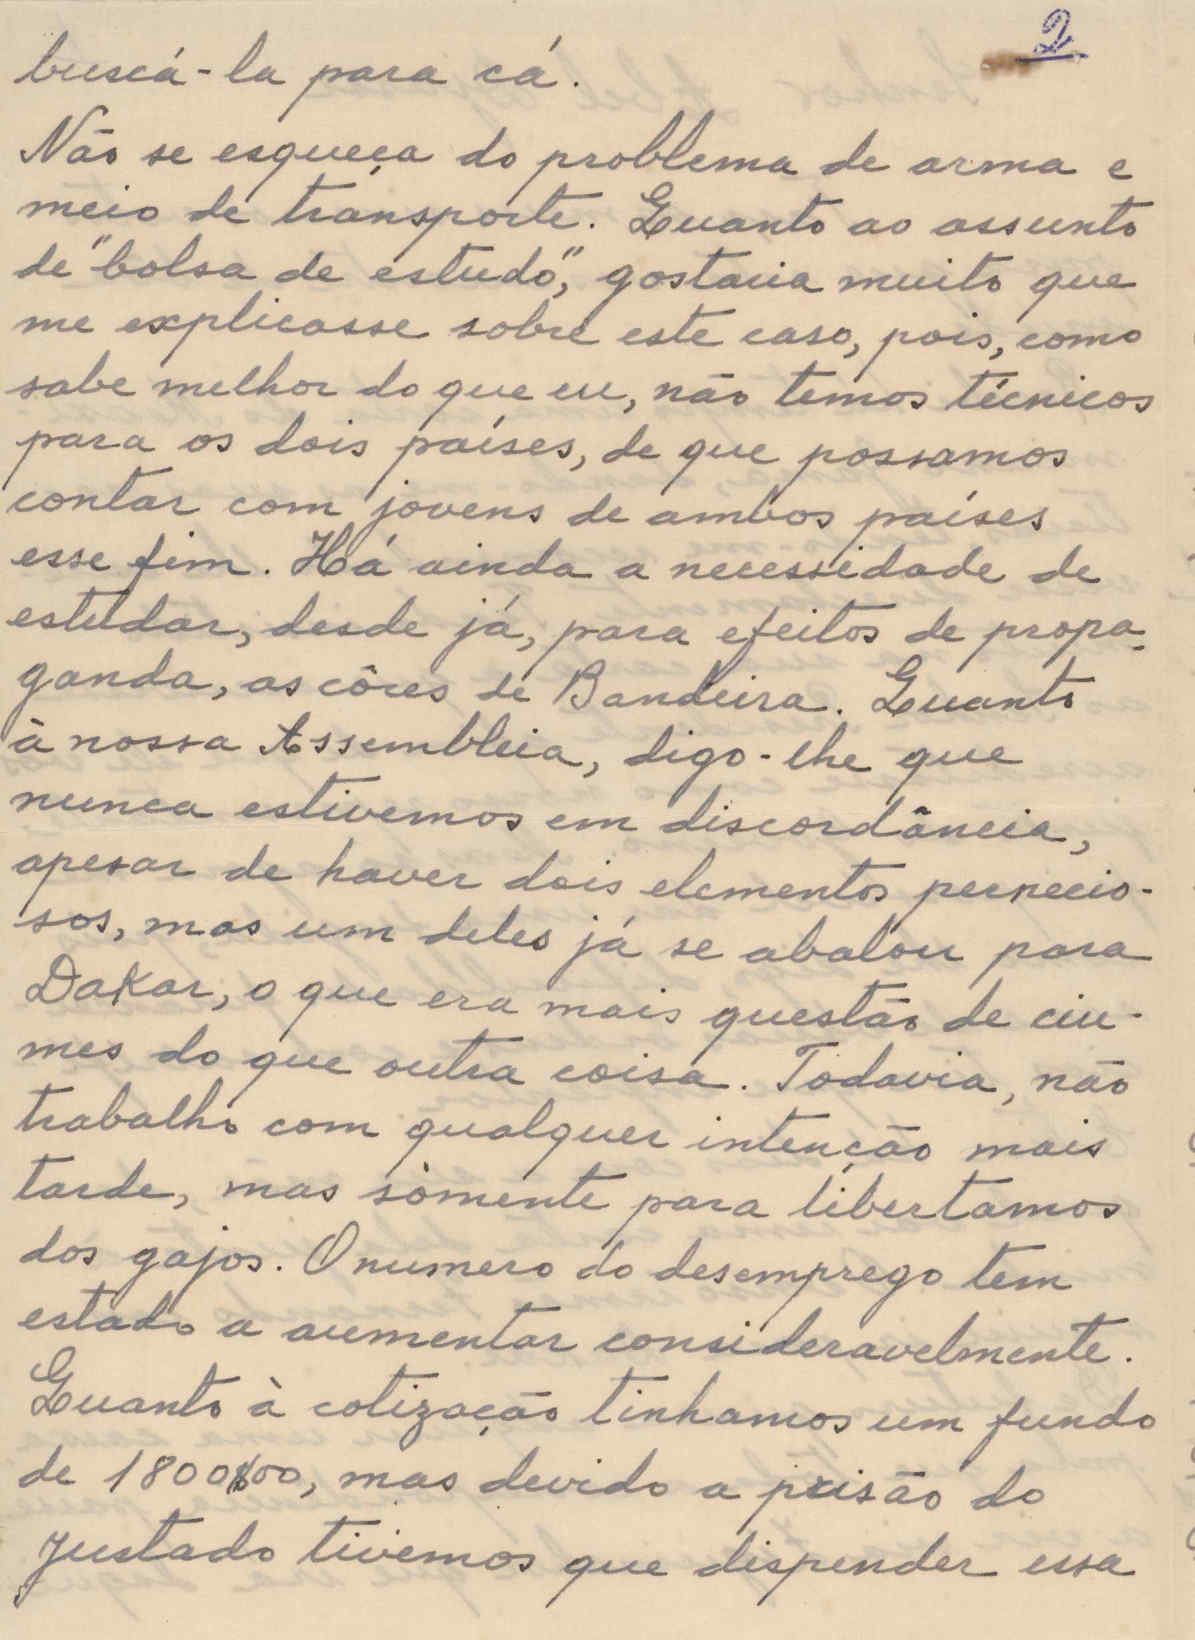 2
buscá-la para cá.
Não se esqueça do problema de arma e
meio de transporte. Quanto ao assunto
de "bolsa de estudo", gostaria muito que
me explicasse sobre este caso, pois, como
sabe melhor do que eu, não temos técnicos
para os dois países, de que possamos
contar com jovens de ambos países
esse fim. Há ainda a necessidade de
estudar, desde já, para efeitos de propa-
ganda, as côres de Bandeira. Quanto
à nossa Assembleia, digo-lhe que
nunca estivemos em discordância,
apesar de haver dois elementos pernecio-
sos, mas um deles já se abalou para
Dakar, o que era mais questão de ciu-
mes do que outra coisa. Todavia, não
trabalho com qualquer intenção mais
tarde, mas sòmente para libertamos
dos gajos. O numero do desemprego tem
estado a aumentar consideravelmente.
Quanto à cotização tinhamos um fundo
de 1800$00, mas devido a prisão do
tivemos que dispender essa